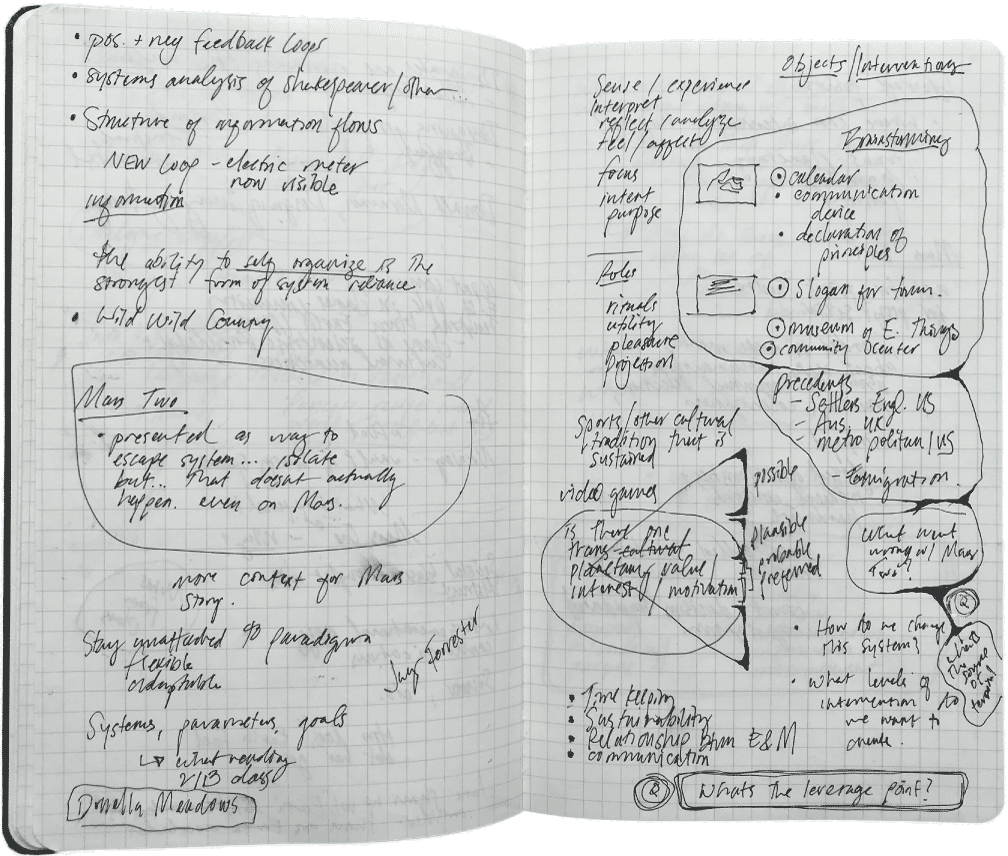 • pos. + neg feedback loops
• systems analysis of shakespeare/other...
• Structure of information flows
NEW Loop – electric meter
now visible
information
the ability to self organize is the
strongest form of system reliance
• Wild Wild Country
Mars Two
• presented as way to
escape system... isolate
but... that doesnt actually
happen. even on Mars.
more context for Mars
story.
Stay unattached to paradigm
flexible
adaptable
Jay Forrester
Systems, parameters, goals
↳ what reading
2/13 class
Donella Meadows
Objects/Interventions
Sense / experience
interpret
reflect / analyze
feel / affect
focus
intent
purpose
Roles
rituals
utility
pleasure
projection
Brainstorming
• calendar
• communication
device
• declaration of
principles
• Slogan for town.
• museum of E. Things
• community center
precedents
– Settlers Engl. US
– Aus. UK
– metropolitan / US
– Emigration.
Sports/other cultural
tradition that is
sustained
video games
is there one
trans-cultural
planetary value/
interest / motivation
possible
plausible
probable
preferred
What went
wrong w/ Mars
Two?
Q
• How do we change
this system?
• what levels of
intervention do
we want to
create.
what's
the
source
of
• Time keeping
• Sustainability
• Relationship btwn E&M
• communication
Q
Whats the leverage point?